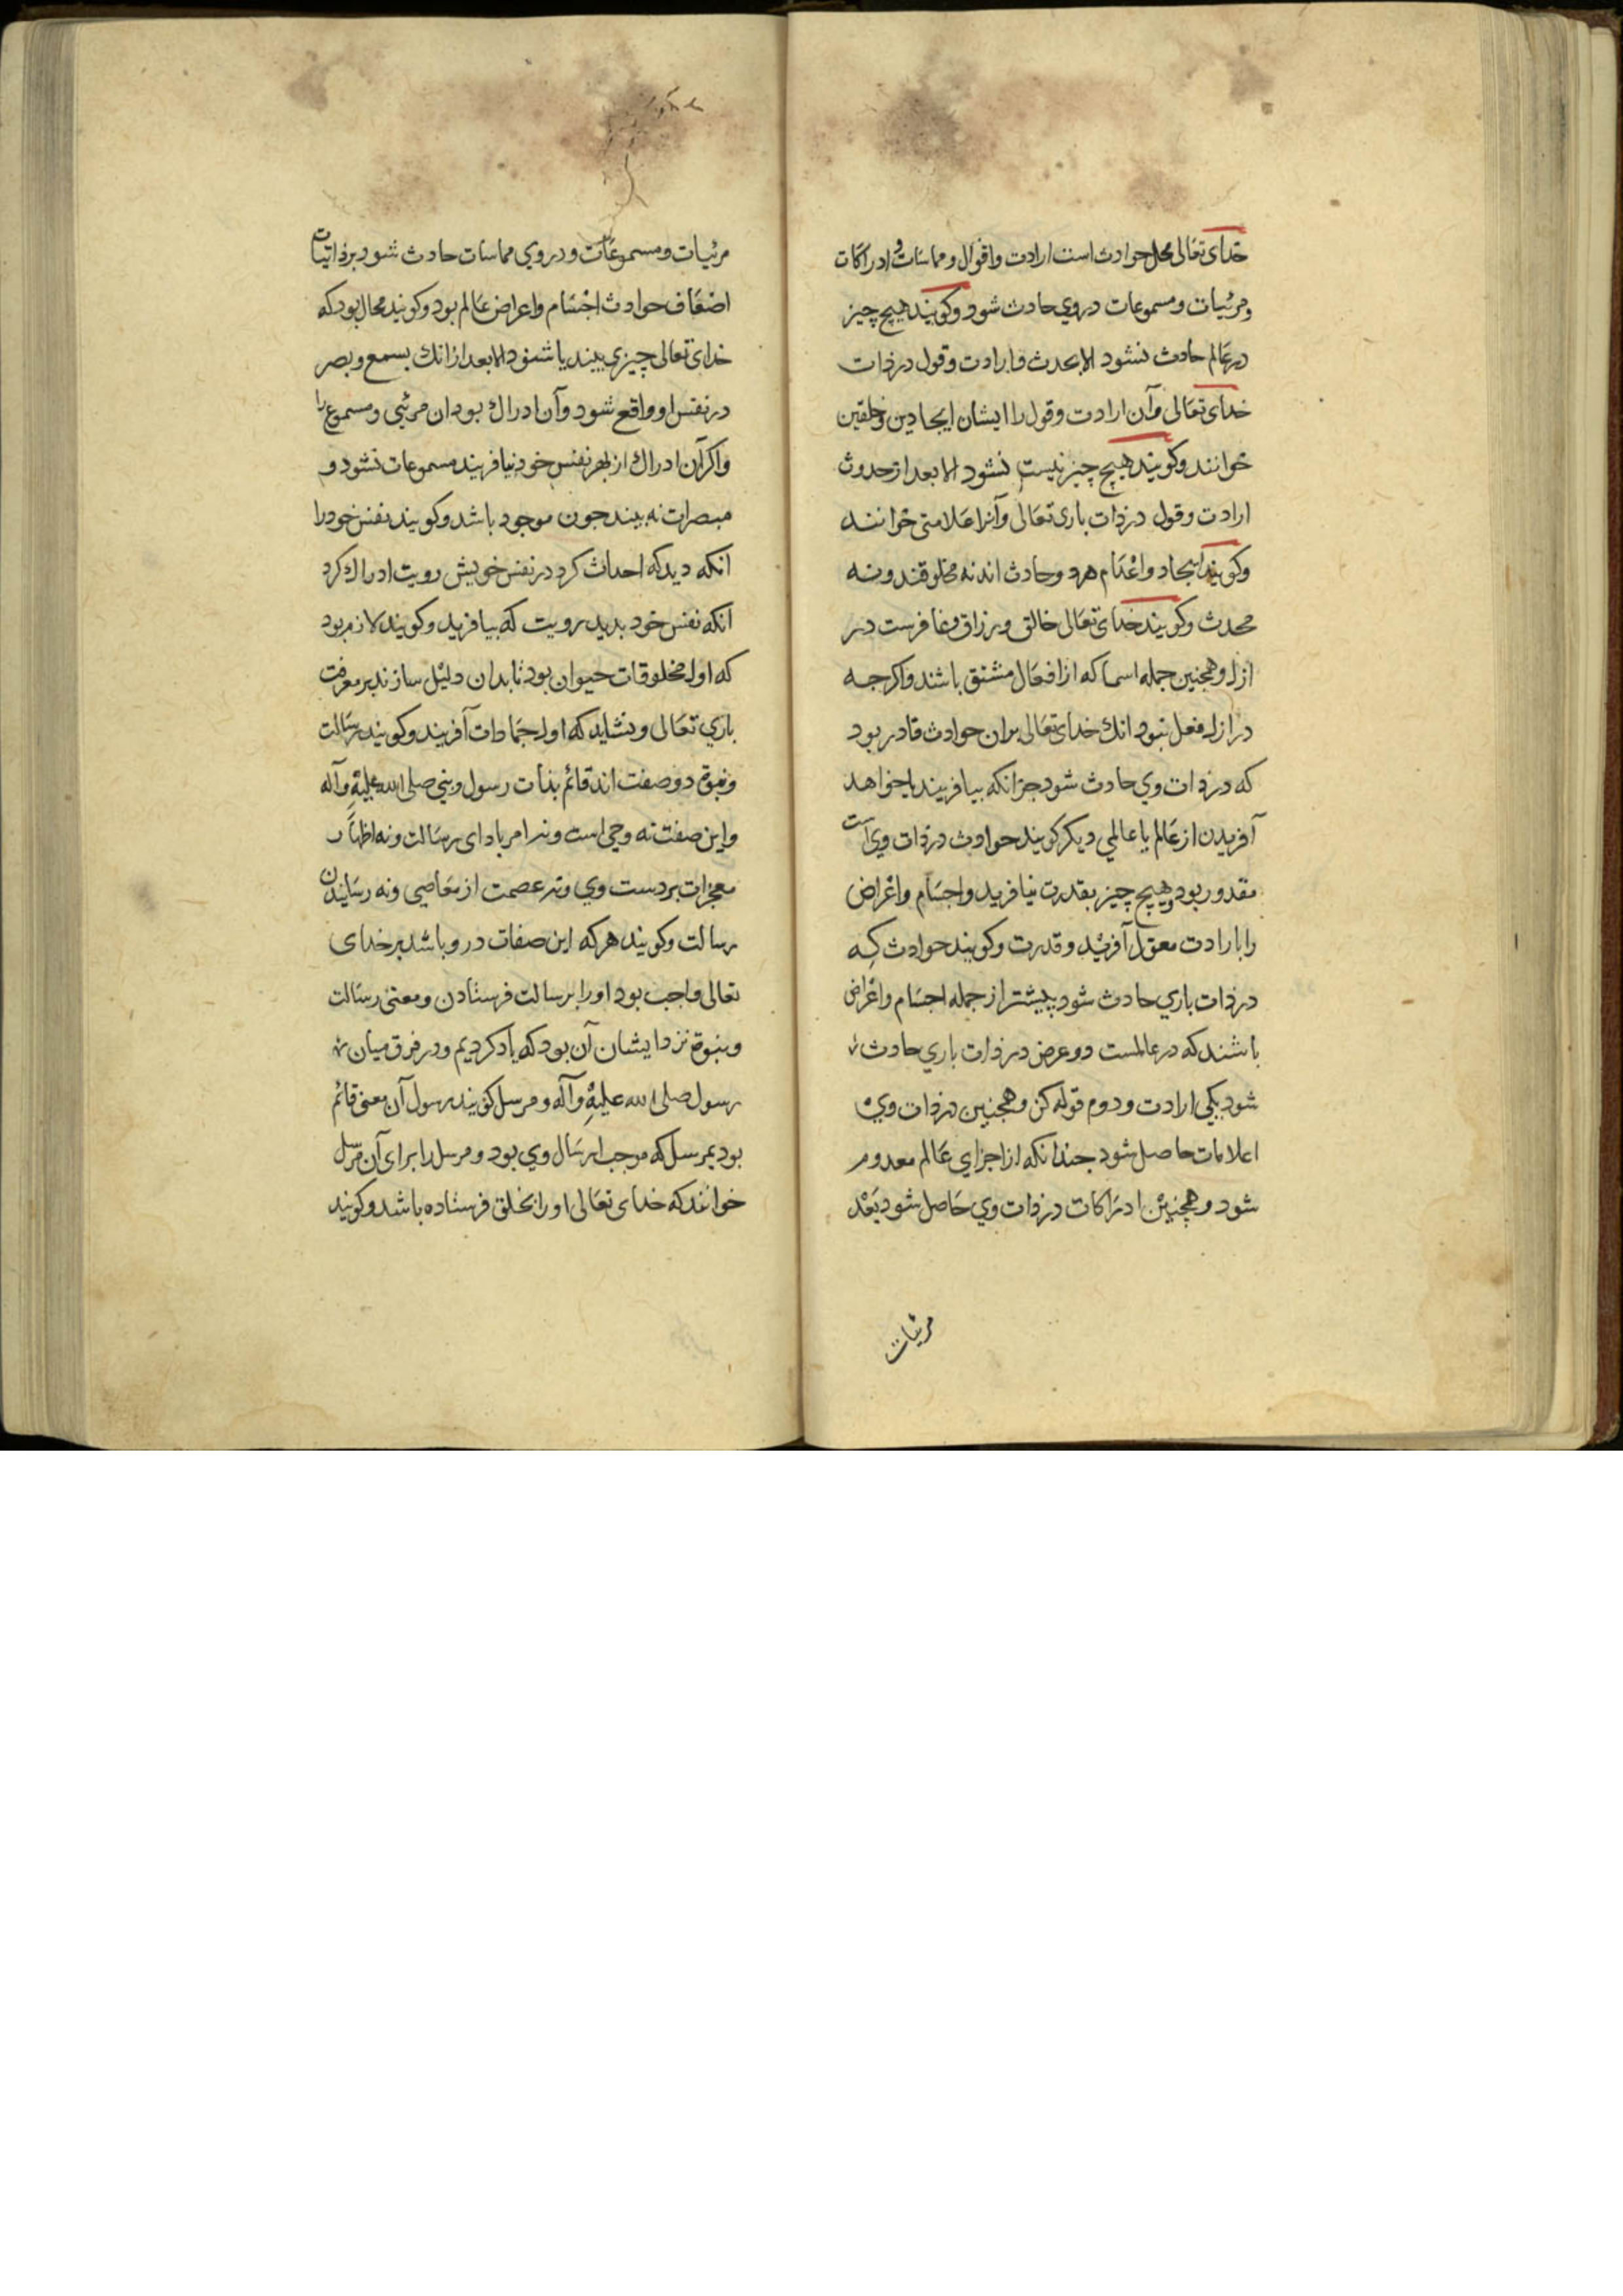 خدای تعالی محل حوادث است ارادت واقوال ومماسات و ادراکات
ومرئیات ومسموعات در وی حادث شود وکویند هیچ چیز
در عالم حادث نشود الا بحدث ارادت وقول در ذات
خدای تعالی وآن ارادت وقول را ایشان ایجاد
خوانند وکویند هیچ چیز نیست نشود الا بعد از حدوث
ارادت وقول در ذات باری تعالی وآنرا خوانند
وکویند ایجاد واعدام هرد وحادث اند نه مخلوقند ونه
محدث وکویند خدای تعالی خالق ورزاق وغافرست در
ازل وهمچنین جمله اسما که از افعال مشتق باشند واکرجه
در ازل فعل نبود انک خدای تعالی بران حوادث قادر بود
که در ذات وی حادث شود جزانکه بیافریند یا خواهد
آفریدن از عالم یا عالمی دیکر کویند حوادث در ذات وی است
مقدور بود وهیچ چیز بقدرت نیافرید واجسام واعراض
را بارادت آفرید وقدرت وکویند حوادث که
در ذات باری حادث شود پیشتر از جمله اجسام واعراض
باشند که در عالمست دو عرض در ذات باری حادث
شود یکی ارادت ودوم قوله کن وهمچنین در ذات وی
حاصل شود جندانکه از اجزای عالم معدوم
شود وهمچنین ادراکات در ذات وی حاصل شود بعدد
مرئیات
مرئیات ومسموعات ودر وی مماسات حادث شود
اضعاف حوادث اجسام واعراض عالم بود وکویند محال بود که
خدای تعالی چیزی بیند یا شنود الا بعد ازانک بسمع وبصر
در نفس او واقع شود وآن ادراک بودان مرئی ومسموع را
واکر آن ادراک از بهر نفس خود نیافریند مسموعات نشود و
مبصرات نه بیند جون موجود باشد وکویند نفس خود را
انکه دید که احداث کرد در نفس خویش رویت ادراک کرد
انکه نفس خود بدید رویت که بیافرید وکویند لازم بود
که اول مخلوقات حیوان بود تا بدان دلیل سازند بر معرفت
باری تعالی ونشاید که اول جمادات آفریند وکویند رسالت
ونبوة دو صفت اند قائم بذات رسول ونبی صلی الله علیه وآله
واین صفت نه وحی است ونه امر باد ای رسالت ونه اظهار
معجزات بر دست وی ونه عصمت از معاصی ونه رسانیدن
رسالت وکویند هر که این صفات در و باشد بر خدای
تعالی واجب بود اورا برسالت فرستادن ومعنی رسالت
ونبوة نزد ایشان آن بود که یاد کردیم ودر فرق میان
رسول صلی الله علیه وآله ومرسل کویند رسول آن معنی قائم
بود بمرسل که موجب ارسال وی بود ومرسل را برای آن مرسل
خوانند که خدای تعالی اورا بخلق فرستاده باشد وکویند